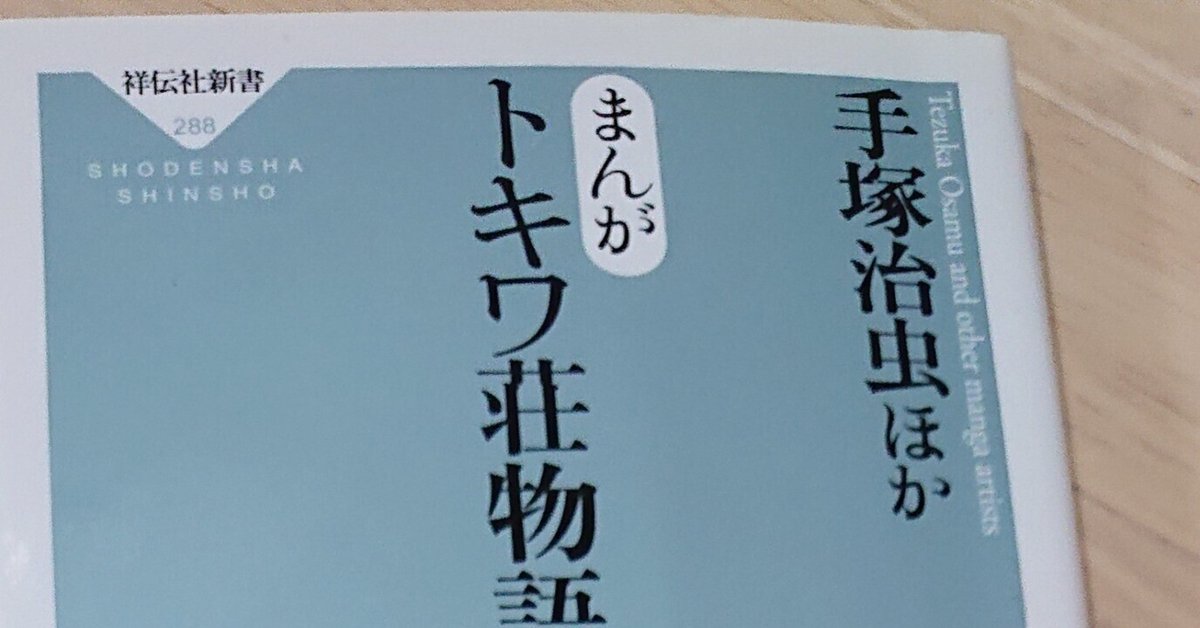 祥伝社新書
288
SHODENSHA
SHINSHO
手塚治虫ほか
Tezuka Osamu and other manga artists
まんが
トキワ荘物語